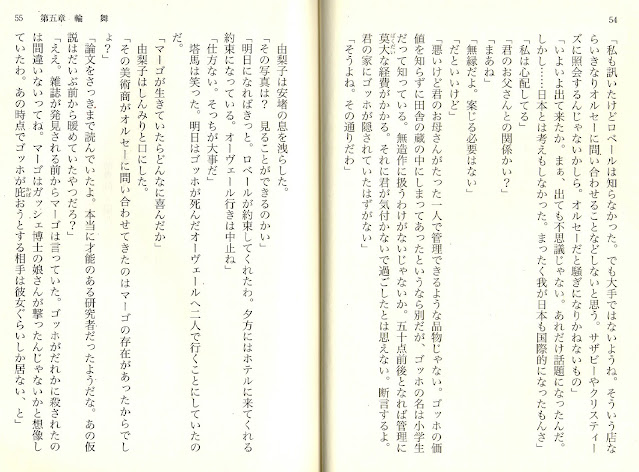 54
「私も訊いたけどロベールは知らなかった。でも大手ではないようね。そういう店な
らいきなりオルセーに問い合わせることなどしないと思う。サザビーやクリスティー
ズに照会するんじゃないかしら。オルセーだと騒ぎになりかねないもの」
「いよいよ出て来たか。まぁ、出ても不思議じゃない。あれだけ話題になったんだ。
しかし……日本とは考えもしなかった。まったく我が日本も国際的になったもんさ」
「私は心配してる」
「君のお父さんとの関係かい？」
「まあね」
「無縁だよ。案じる必要はない」
「だといいけど」
「悪いけど君のお母さんがたった一人で管理できるような品物じゃない。ゴッホの価
値を知らずに田舎の蔵の中にしまってあったというなら別だが、ゴッホの名は小学生
だって知っている。無造作に扱うわけがないじゃないか。五十点前後となれば管理に
莫大な経費がかかる。それに君が気付かないで過ごしたとは思えない。断言するよ。
君の家にゴッホが隠されていたはずがない」
「そうよね。その通りだわ」
55　第五章　輪　舞
由梨子は安堵の息を洩らした。
「その写真は？　見ることができるのかい」
「明日になればきっと。ロベールが約束してくれたわ。夕方にはホテルに来てくれる
約束になっている。オーヴェール行きは中止ね」
「仕方ない。そっちが大事だ」
塔馬は笑った。明日はゴッホが死んだオーヴェールへ二人で行くことにしていたの
だ。
「マーゴが生きていたらどんなに喜んだか」
由梨子はしんみりと口にした。
「その美術商がオルセーに問い合わせてきたのはマーゴの存在があったからでし
ょ？」
「論文をさっきまで読んでいたよ。本当に才能のある研究者だったようだな。あの仮
説はだいぶ前から暖めていたやつだろ？」
「ええ。雑誌が発見される前からマーゴは言っていた。ゴッホがだれかに殺されたの
は間違いないってね。マーゴはガッシェ博士の娘さんが撃ったんじゃないかと想像し
ていたわ。あの時点でゴッホが庇おうとする相手は彼女ぐらいしか居ない、と」